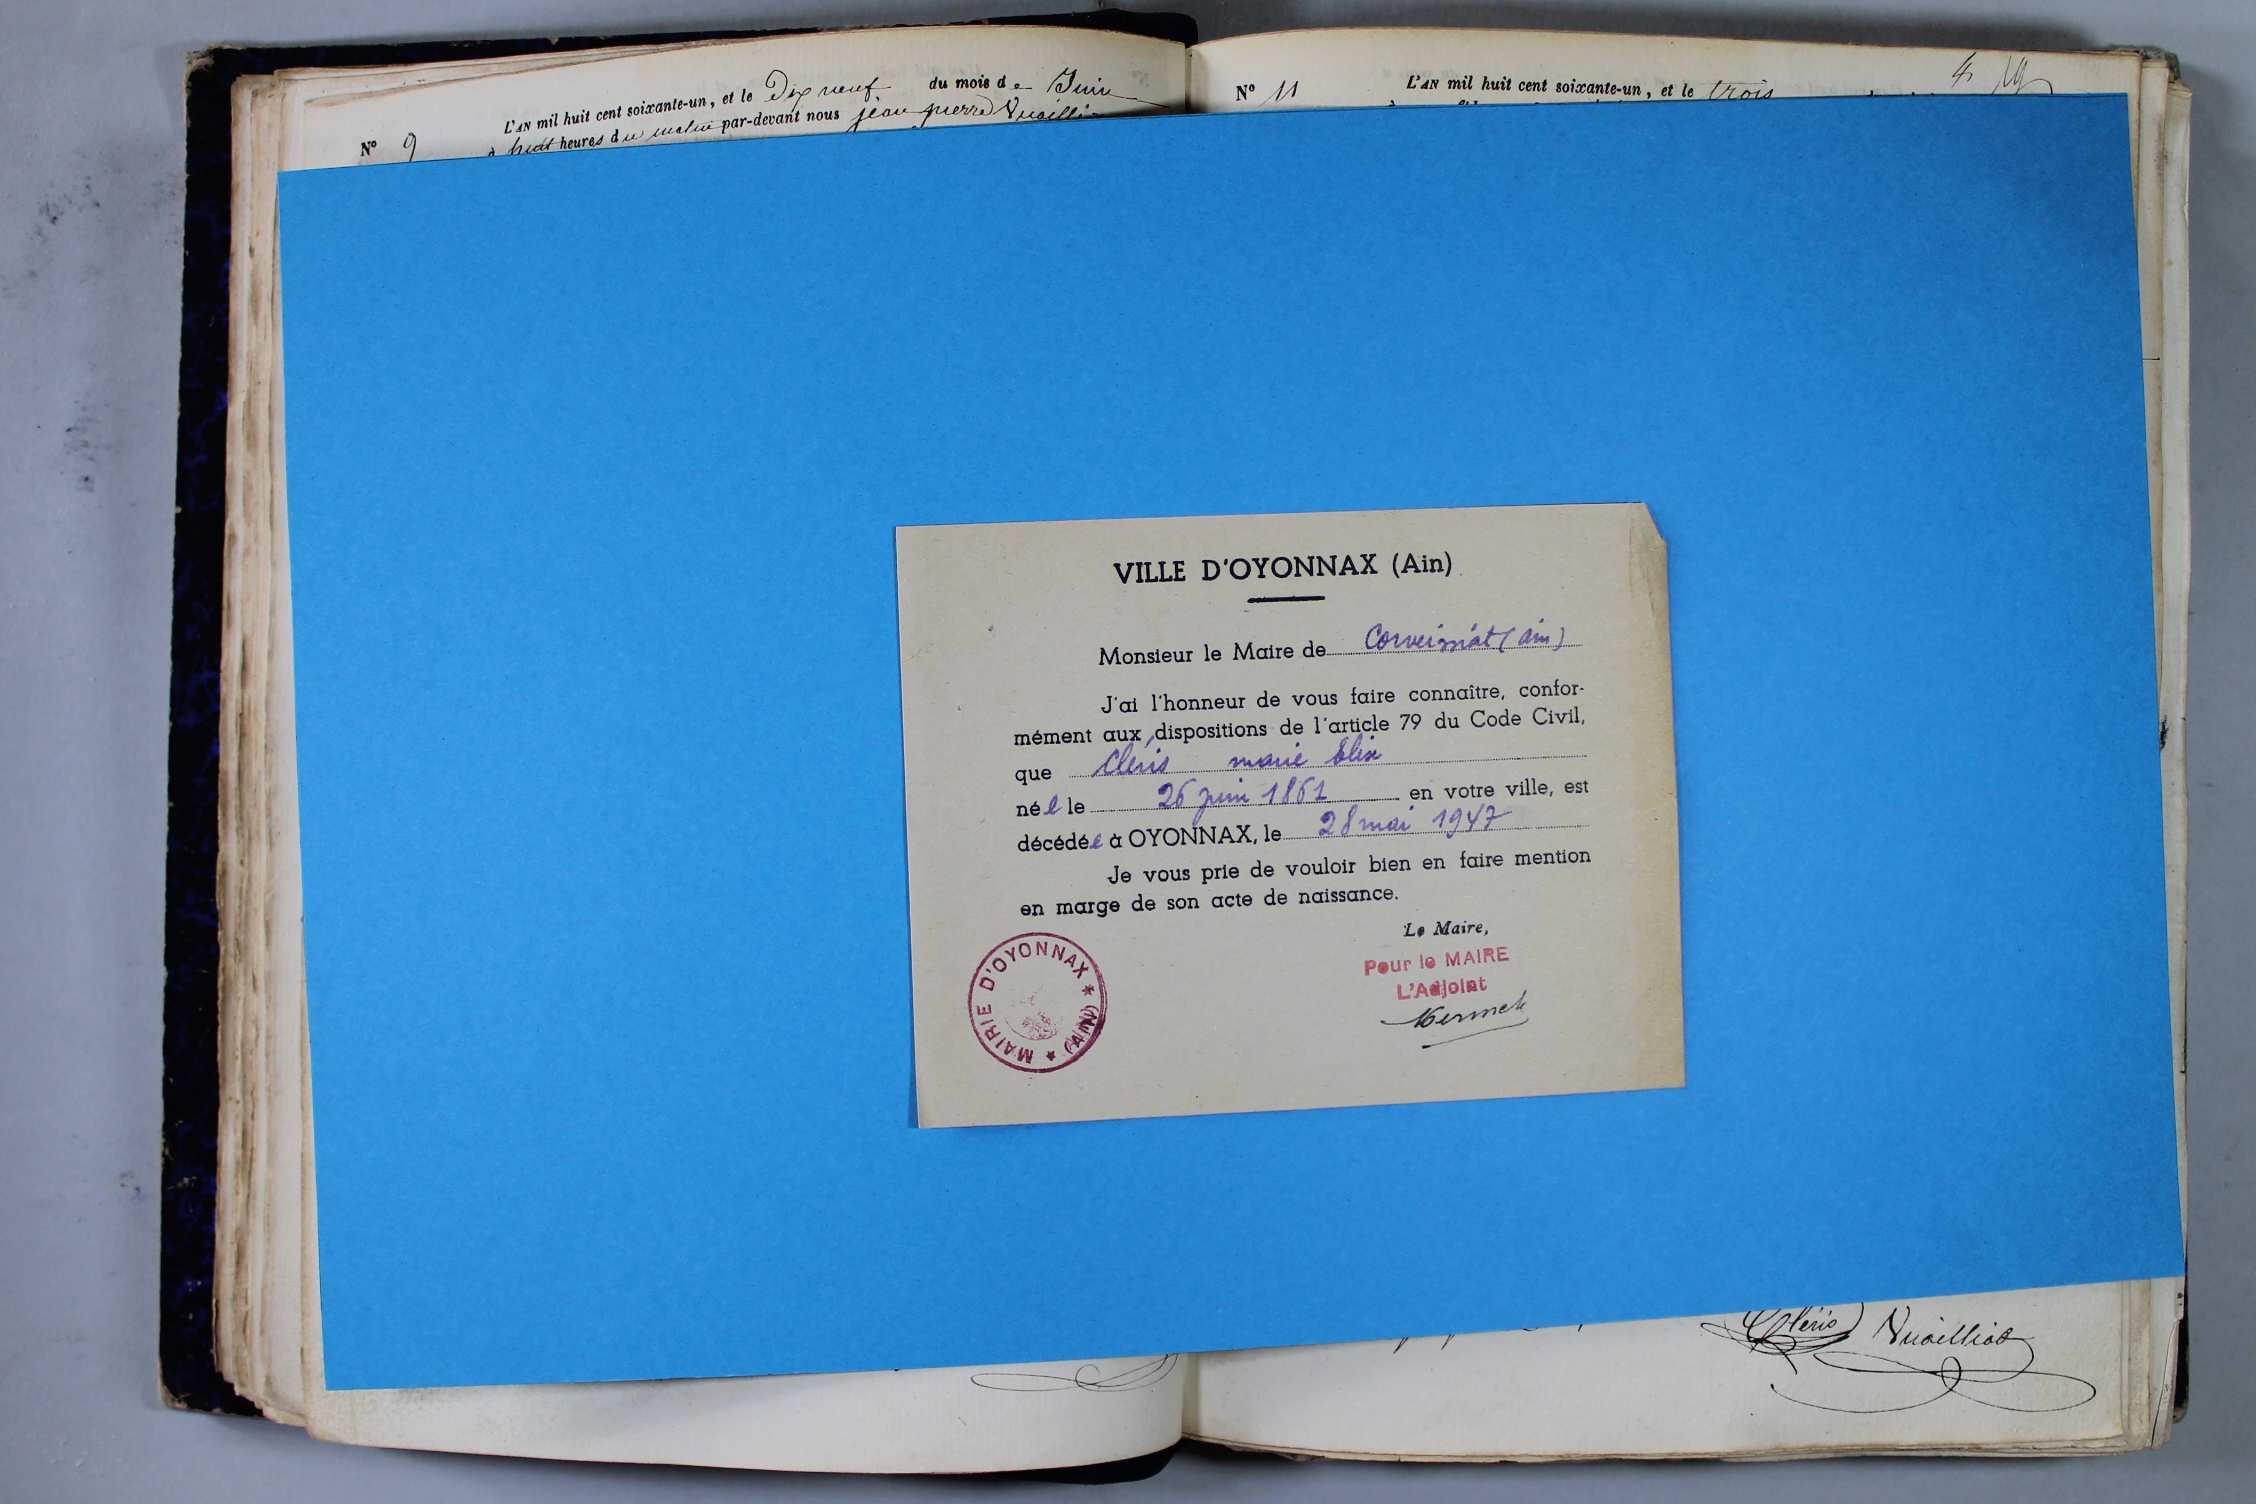 L'AN mil huit cent soixante-un, et le Dix neuf du mois de Juin
N° 9
à huit heures du matin par-devant nous jean pierre Vuaillio
4 19
N° 11 L'AN mil huit cent soixante-un, et le trois
VILLE D'OYONNAX (Ain)
Monsieur le Maire de Corveissiat (Ain)
J'ai l'honneur de vous faire connaître, confor-
mément aux dispositions de l'article 79 du Code Civil,
que Cléris marie Elise
née le 26 juin 1861 en votre ville, est
décédée à OYONNAX, le 28 mai 1947
Je vous prie de vouloir bien en faire mention
en marge de son acte de naissance.
Le Maire,
Pour le MAIRE
L'Adjoint
MAIRIE D'OYONNAX * (AIN) *
Cléris Vuailliod